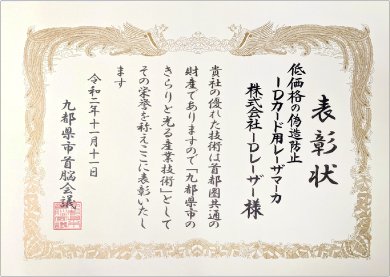 表彰状
低価格の偽造防止
IDカード用レーザマーカ
株式会社IDレーザー様
貴社の優れた技術は首都圏共通の
財産でありますので「九都県市の
きらりと光る産業技術」として
その栄誉を称えここに表彰いたし
ます
令和二年十一月十一日
九都県市首脳会議